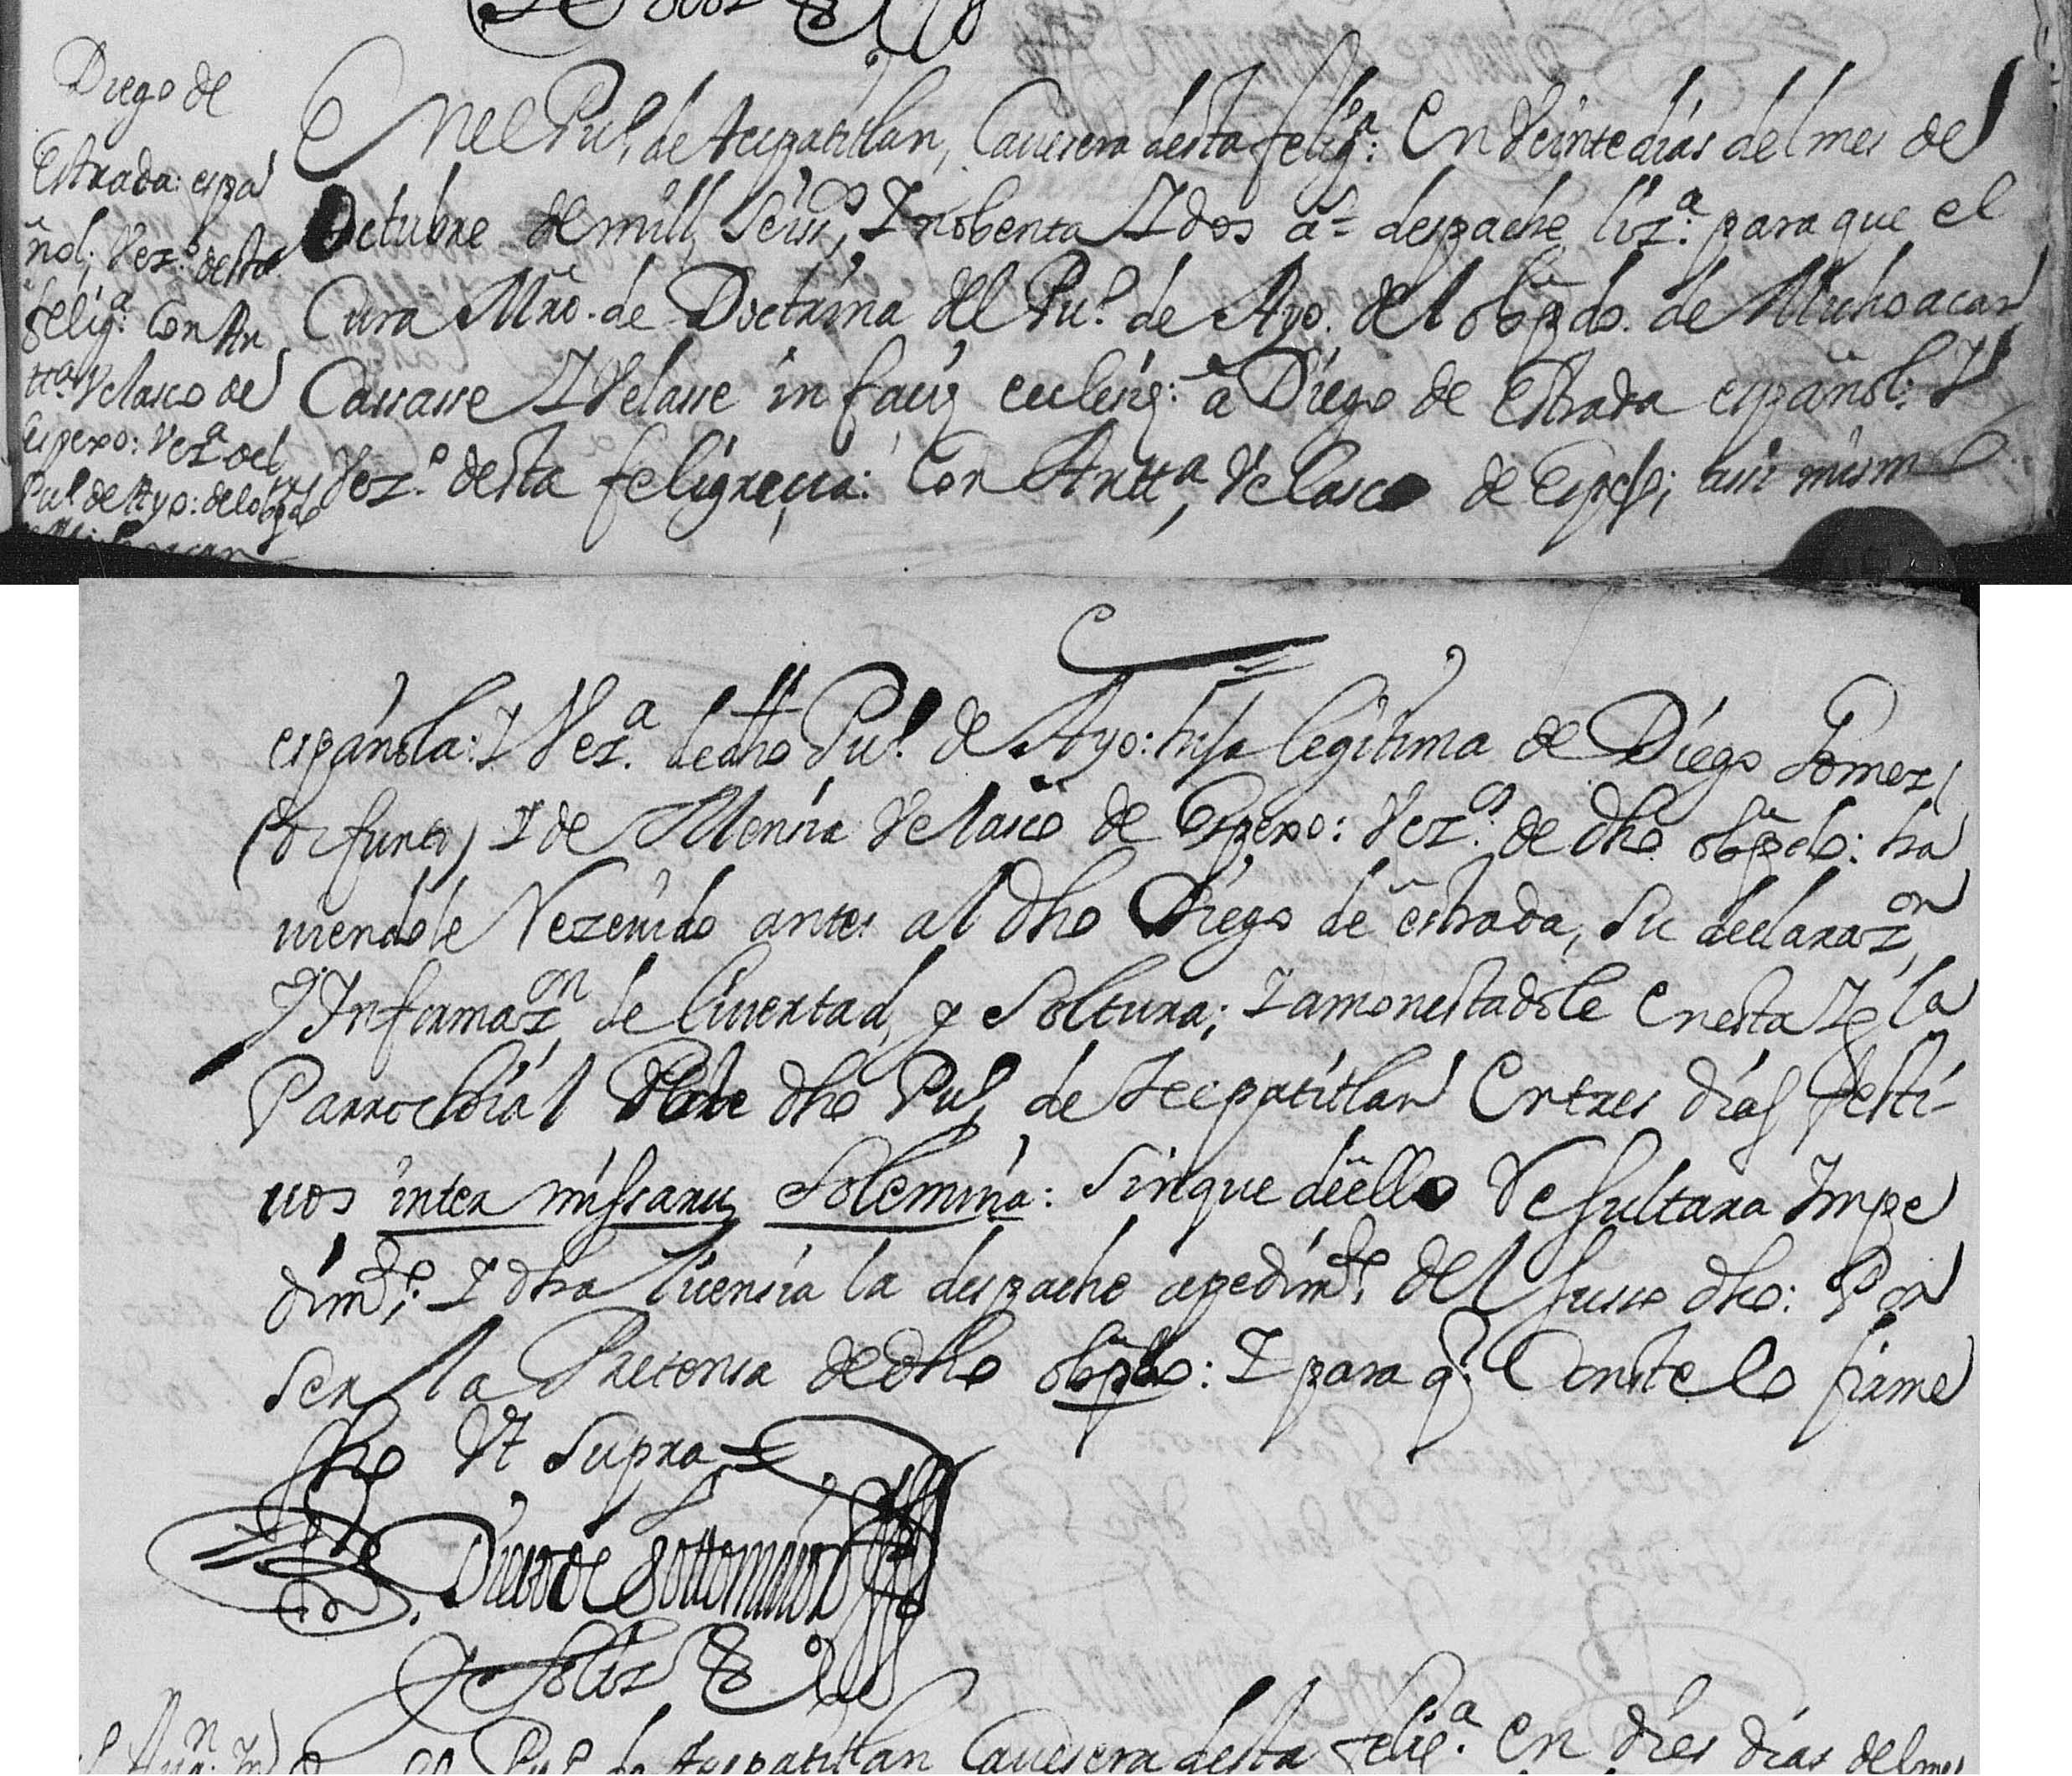 Diego de
Estrada: espa
ñol; Vezº desta
feligª con An
ttª Velasco de
Espexo: Vezª del
Puº de Ayo: del obpdo
En el Puº de tecpatitlan, Cavesera desta feligª: En Veinte dias del mes de
Octubre de mill, Seisosº, I nobenta I dos aˢ despache lizª: para que el
Cura Mño. de Doctrina del Puº de Ayo. del obpdo. de Michoacan
Cassasse I Velasse in facij ecclesiȩ: â Diego de Estrada español: I
Vezº desta feligrecia: Con Anttª, Velasco de Espexo; assi mismo
española: I Vezª de dho Puº de Ayo: hija legitima de Diego Gomez
(difunto) I de Mensia Velasco de Espexo: Vezºˢ de dho obpdo: ha
viendole Rezevido antes al dho Diego de estrada, Su declarazon,
I Informazon de livertad, y Soltura; I amonestadole En esta Igla
Parrochial de dho Puº de tecpatitlan En tres dias festi-
vos inter missaru Solemnia: Sin que de ello Resultara Impe
dimtº; I dha licensia la despache a pedimtº del Susso dho: Por
Ser la Pretensa de dho obpdo: I para q Conste lo firme
fho Vt Supra =
Diego de Sottomaior
y Soliz
el Puº de tecpatitlan Cavesera desta feligª: En dies dias del mes